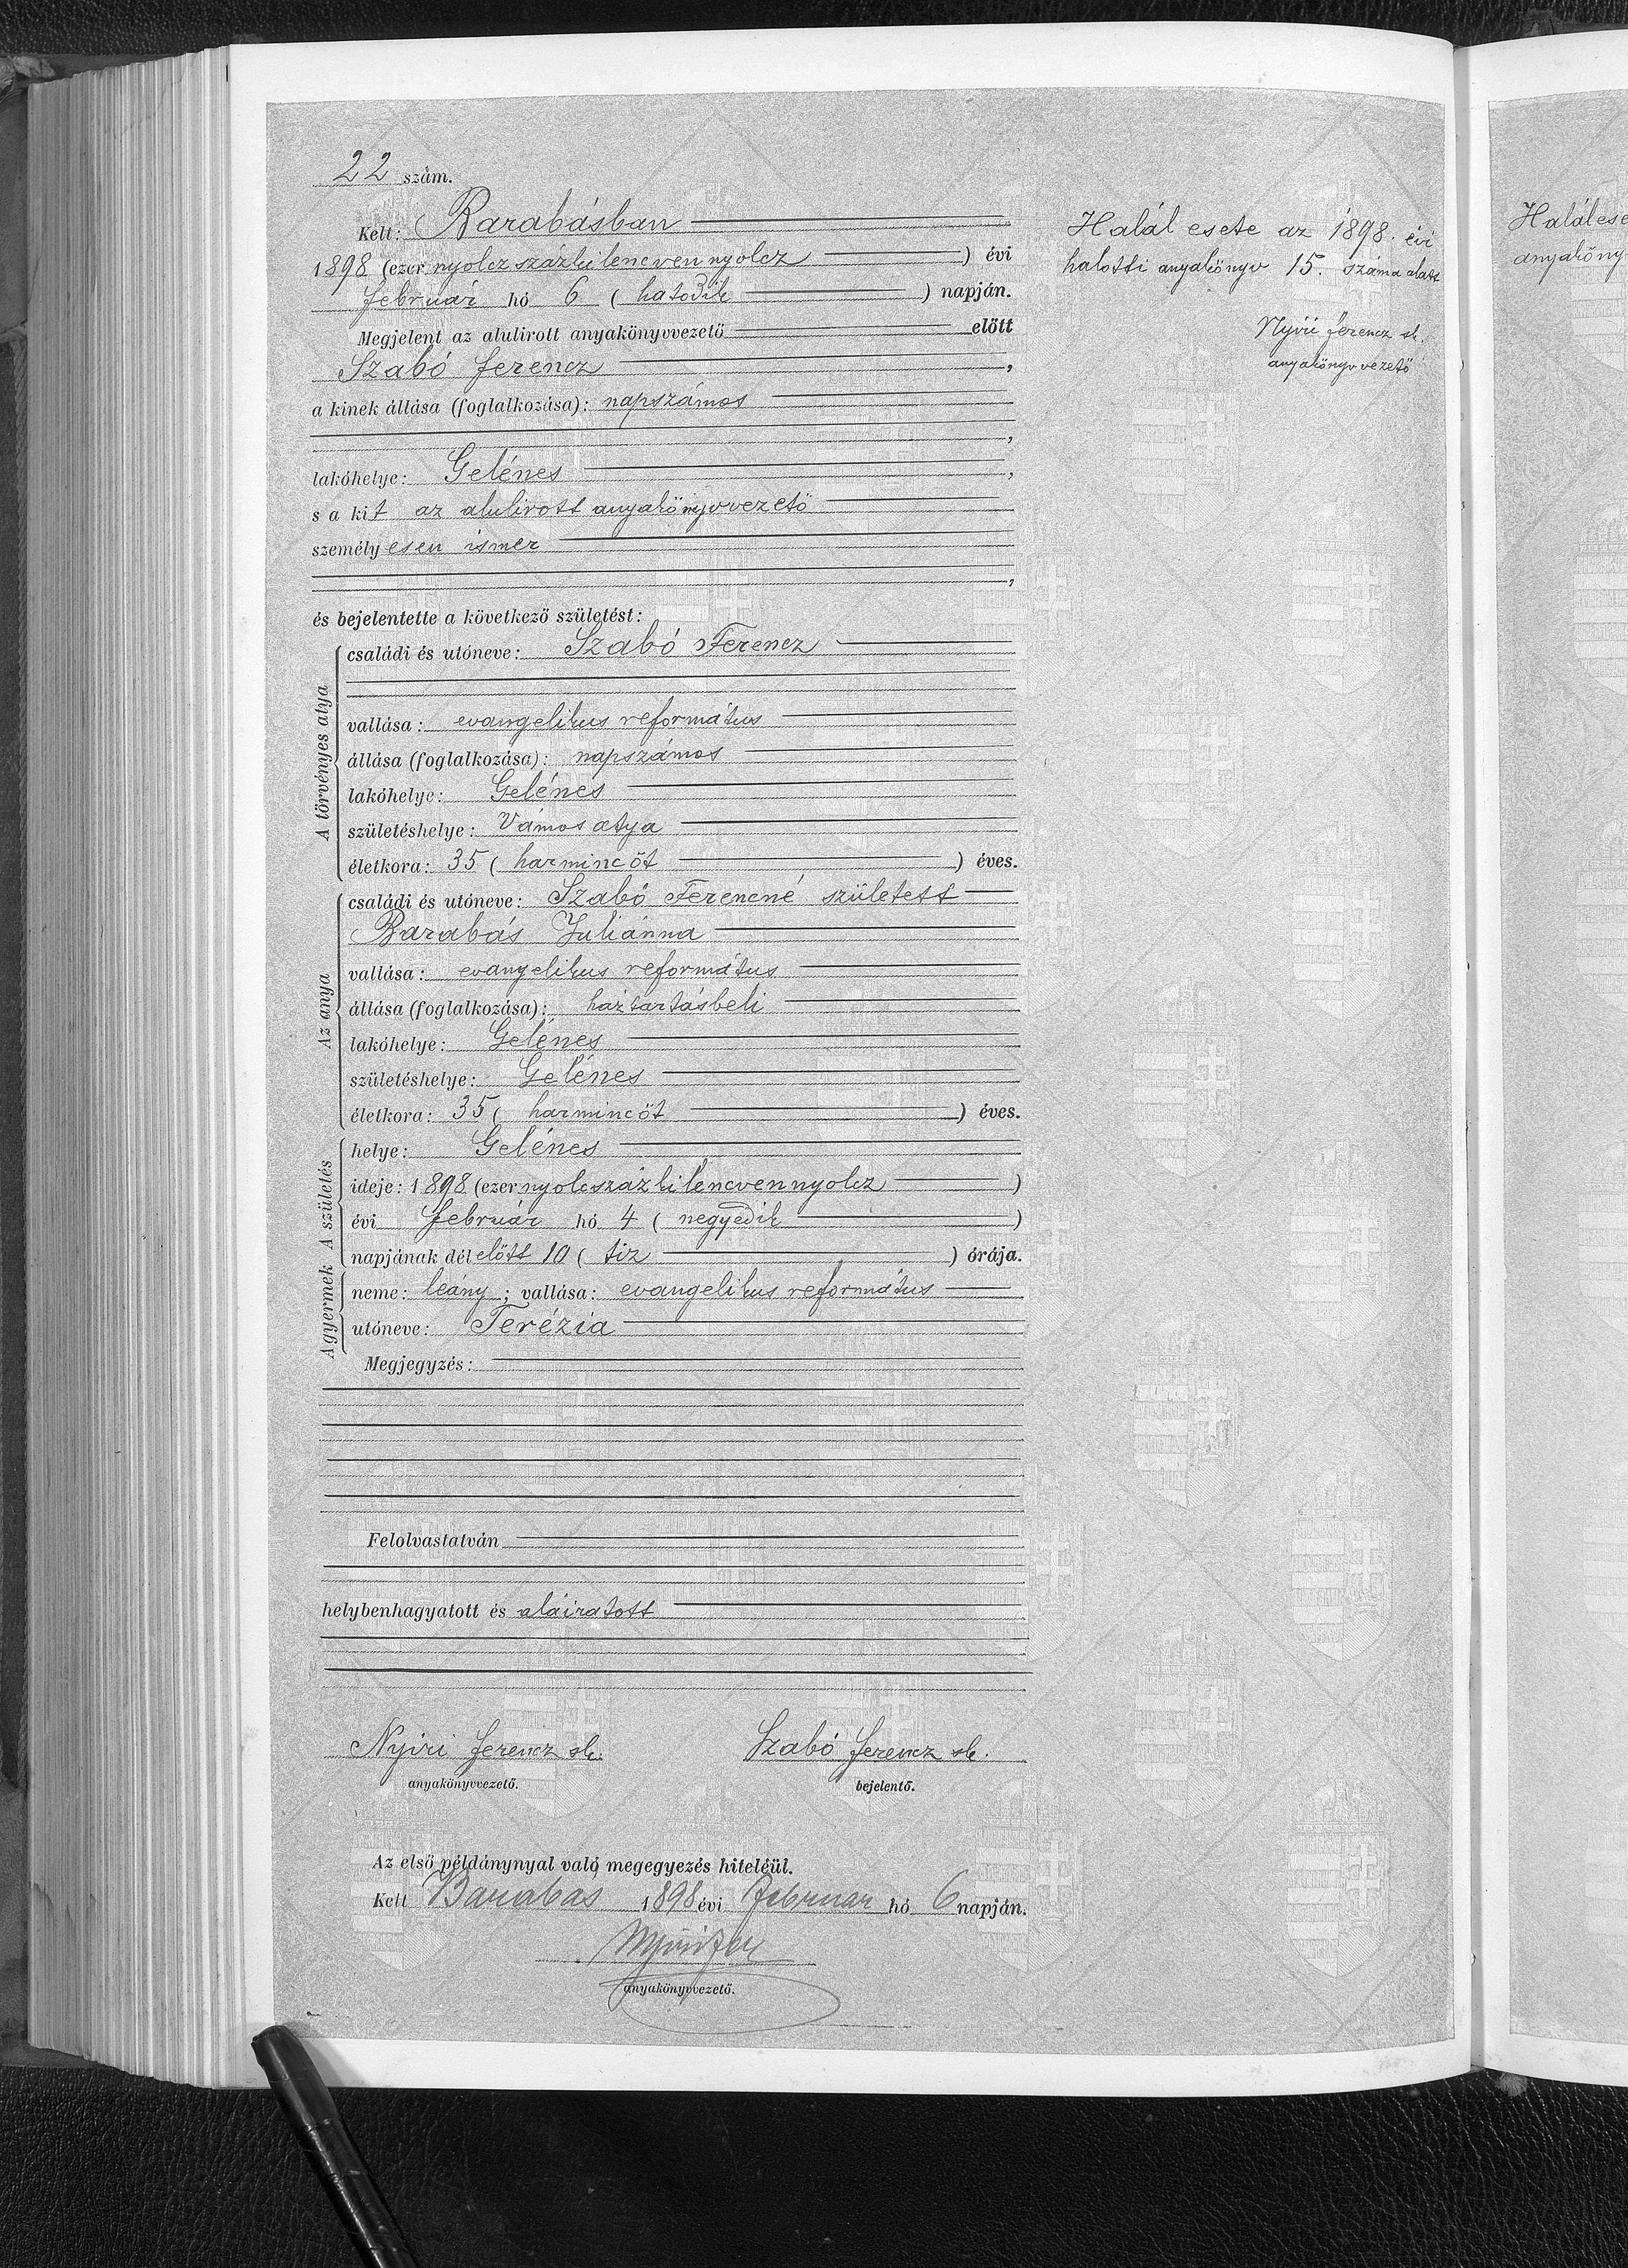 22 szám.
Kelt: Barabásban
1898 (ezer nyolcz százkilenczven nyolcz ) évi
február hó 6 ( hatodik ) napján.
Megjelent az alulirott anyakönyvvezető előtt
Szabó Ferencz ,
a kinek állása (foglalkozása): napszámos
,
lakóhelye: Gelénes ,
s a kit az alulirott anyakönyvvezető
személyesen ismer
,
és bejelentette a következő születést:
A törvényes atya
családi és utóneve: Szabó Ferencz
vallása: evangelikus református
állása (foglalkozása): napszámos
lakóhelye: Gelénes
születéshelye: Vámos atya
életkora: 35 ( harmincöt ) éves.
Az anya
családi és utóneve: Szabó Ferencné született
Barabás Juliánna
vallása: evangelikus református
állása (foglalkozása): háztartásbeli
lakóhelye: Gelénes
születéshelye: Gelénes
életkora: 35 ( harmincöt ) éves.
A születés
helye: Gelénes
ideje: 1898 (ezer nyolcszázkilencvennyolcz )
évi február hó 4 ( negyedik )
napjának délelőtt 10 ( tiz ) órája.
A gyermek
neme: leány ; vallása: evangelikus református
utóneve: Terézia
Megjegyzés:
Felolvastatván
helybenhagyatott és aláiratott
Nyiri Ferencz sk. Szabó Ferencz sk.
anyakönyvvezető. bejelentő.
Az első példánynyal való megegyezés hiteléül.
Kelt Barabás 1898 évi február hó 6 napján.
anyakönyvvezető.
Halál esete az 1898. évi
halotti anyakönyv 15. száma alatt
Nyiri Ferencz sk.
anyakönyvvezető
Halálese
anyaköny